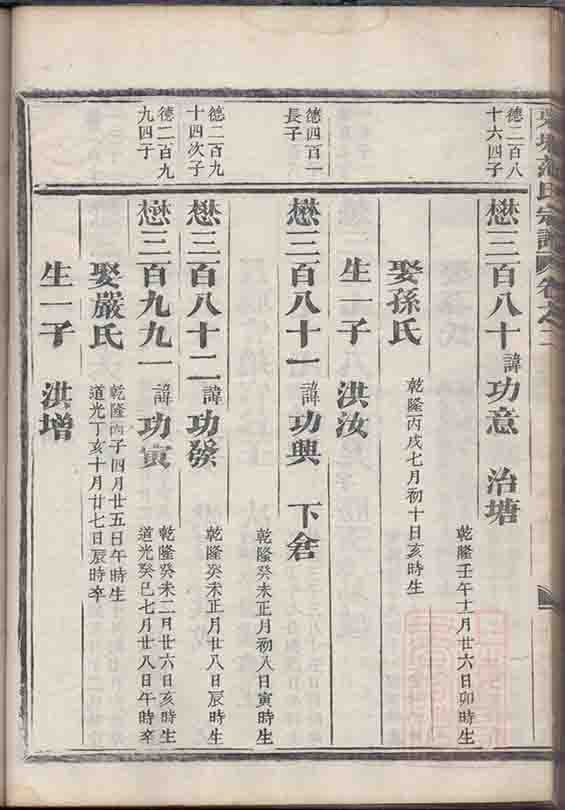 氏宗譜 卷之二
德二百八
十六四子
懋三百八十 諱功意 治塘
乾隆壬午十一月廿六日卯時生
娶孫氏
乾隆丙戌七月初十日亥時生
生一子 洪汝
德四百一
長子
懋三百八十一 諱功興 下倉
乾隆癸未正月初八日寅時生
德二百九
十四次子
懋三百八十二 諱功發
乾隆癸未正月廿八日辰時生
德二百九
九四子
懋三百九九一 諱功寅
乾隆癸未二月廿六日亥時生
道光癸巳七月廿八日午時卒
娶嚴氏
乾隆丙子四月廿五日午時生
道光丁亥十月廿七日辰時卒
生一子 洪增